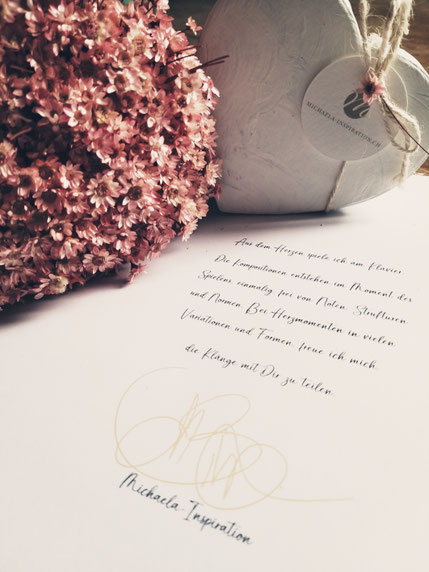 MICHAELA-INSPIRATION.CH
Aus dem Herzen spiele ich am Klavier.
Die Kompositionen entstehen im Moment des
Spielens, einmalig, frei von Noten, Strukturen
und Normen. Bei Herzmomenten in vielen
Variationen und Formen, freue ich mich,
die Klänge mit Dir zu teilen.
Michaela-Inspiration